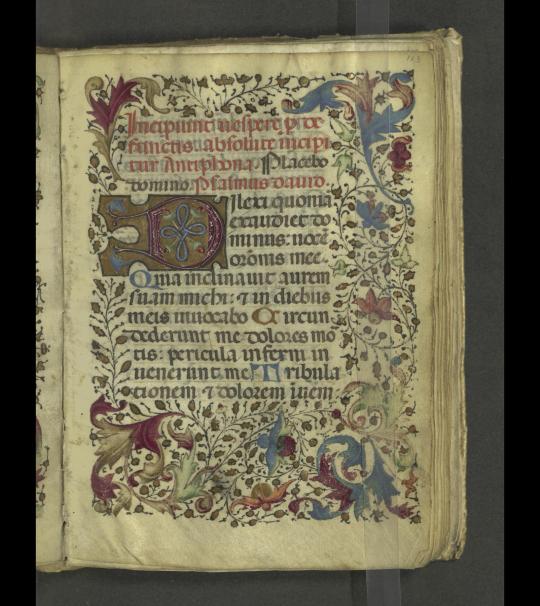 Incipiunt uespere p de
functis absolute incipi
tur Antiphona Placebo
domino. Psalmus dauid.
Dilexi quonia
exaudiet do
minus: uocē
orōnis mee.
Quia inclinauit aurem
suam michi: ⁊ in diebus
meis inuocabo Circun
dederunt me dolores mō
tis: pericula inferni in
uenerunt me Tribula
tionem ⁊ dolorem inuen